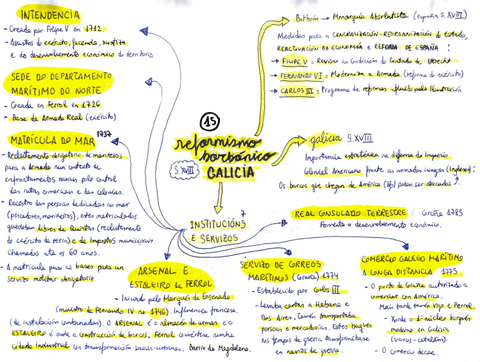 INTENDENCIA
- Creada por Felipe V en 1712
- Asuntos de exército, facenda, xustiza
e do desenvolvemento económico do territorio
SEDE DO DEPARTAMENTO
MARÍTIMO DO NORTE
- Creada en Ferrol en 1726
- Base da Armada Real (exército)
MATRÍCULA DO MAR 1737
- Recrutamento obrigatorio de mariñeiros
para a Armada nun contexto de
enfrontamentos navais polo control
das rutas comerciais e das colonias.
- Rexistro das persoas dedicadas ao mar
(pescadores, mariñeiros), estes matriculados
quedaban libres de Quintas (recrutamento
do exército de terra) e de impostos municipais.
Chamados ata os 60 anos.
- A matrícula pon as bases para un
servizo militar obrigatorio
15
reformismo
borbónico
S. XVIII
GALICIA
INSTITUCIÓNS
E SERVIZOS
Borbón → Monarquía Absolutista (España S. XVIII)
Medidas para a CENTRALIZACIÓN-REORGANIZACIÓN do Estado,
REACTIVACIÓN da ECONOMÍA e REFORMA DE ESPAÑA:
→ FELIPE V:
→ FERNANDO VI: Moderniza a Armada (reforma do exército)
→ CARLOS III: Programa de reformas
galicia S. XVIII
Importancia estratéxica na defensa do Imperio
Colonial Americano fronte as armadas inimigas (inglesa)
Os barcos que chegan de América
REAL CONSULADO TERRESTRE: Coruña 1785
Fomenta o desenvolvemento económico.
ARSENAL E
ESTALEIRO de FERROL
- Iniciado polo Marqués da Ensenada
(ministro de Fernando VI no 1746) Influencia francesa,
(de instalación combinadas). O ARSENAL é o almacén de armas e o
ESTALEIRO é onde a construción de barcos, Ferrol convértese nunha
cidade industrial con transformacións sociais-urbanas. Barrio da Magdalena.
SERVIZO DE CORREOS
MARÍTIMOS (Coruña) 1774
- Establecido por Carlos III
- Levaba cartas a Habana e
Bos Aires. Tamén transportaba
persoas e mercadorías. Estes buques
en tempos de guerra transformábanse
en navíos de guerra.
COMERCIO GALEGO MARÍTIMO
A LONGA DISTANCIA 1775
- O porto de Coruña autorizado a
comerciar con América.
Máis tarde tamén Vigo e Ferrol.
- Xorde o núcleo burgués
moderno en Galicia
- O comercio decae